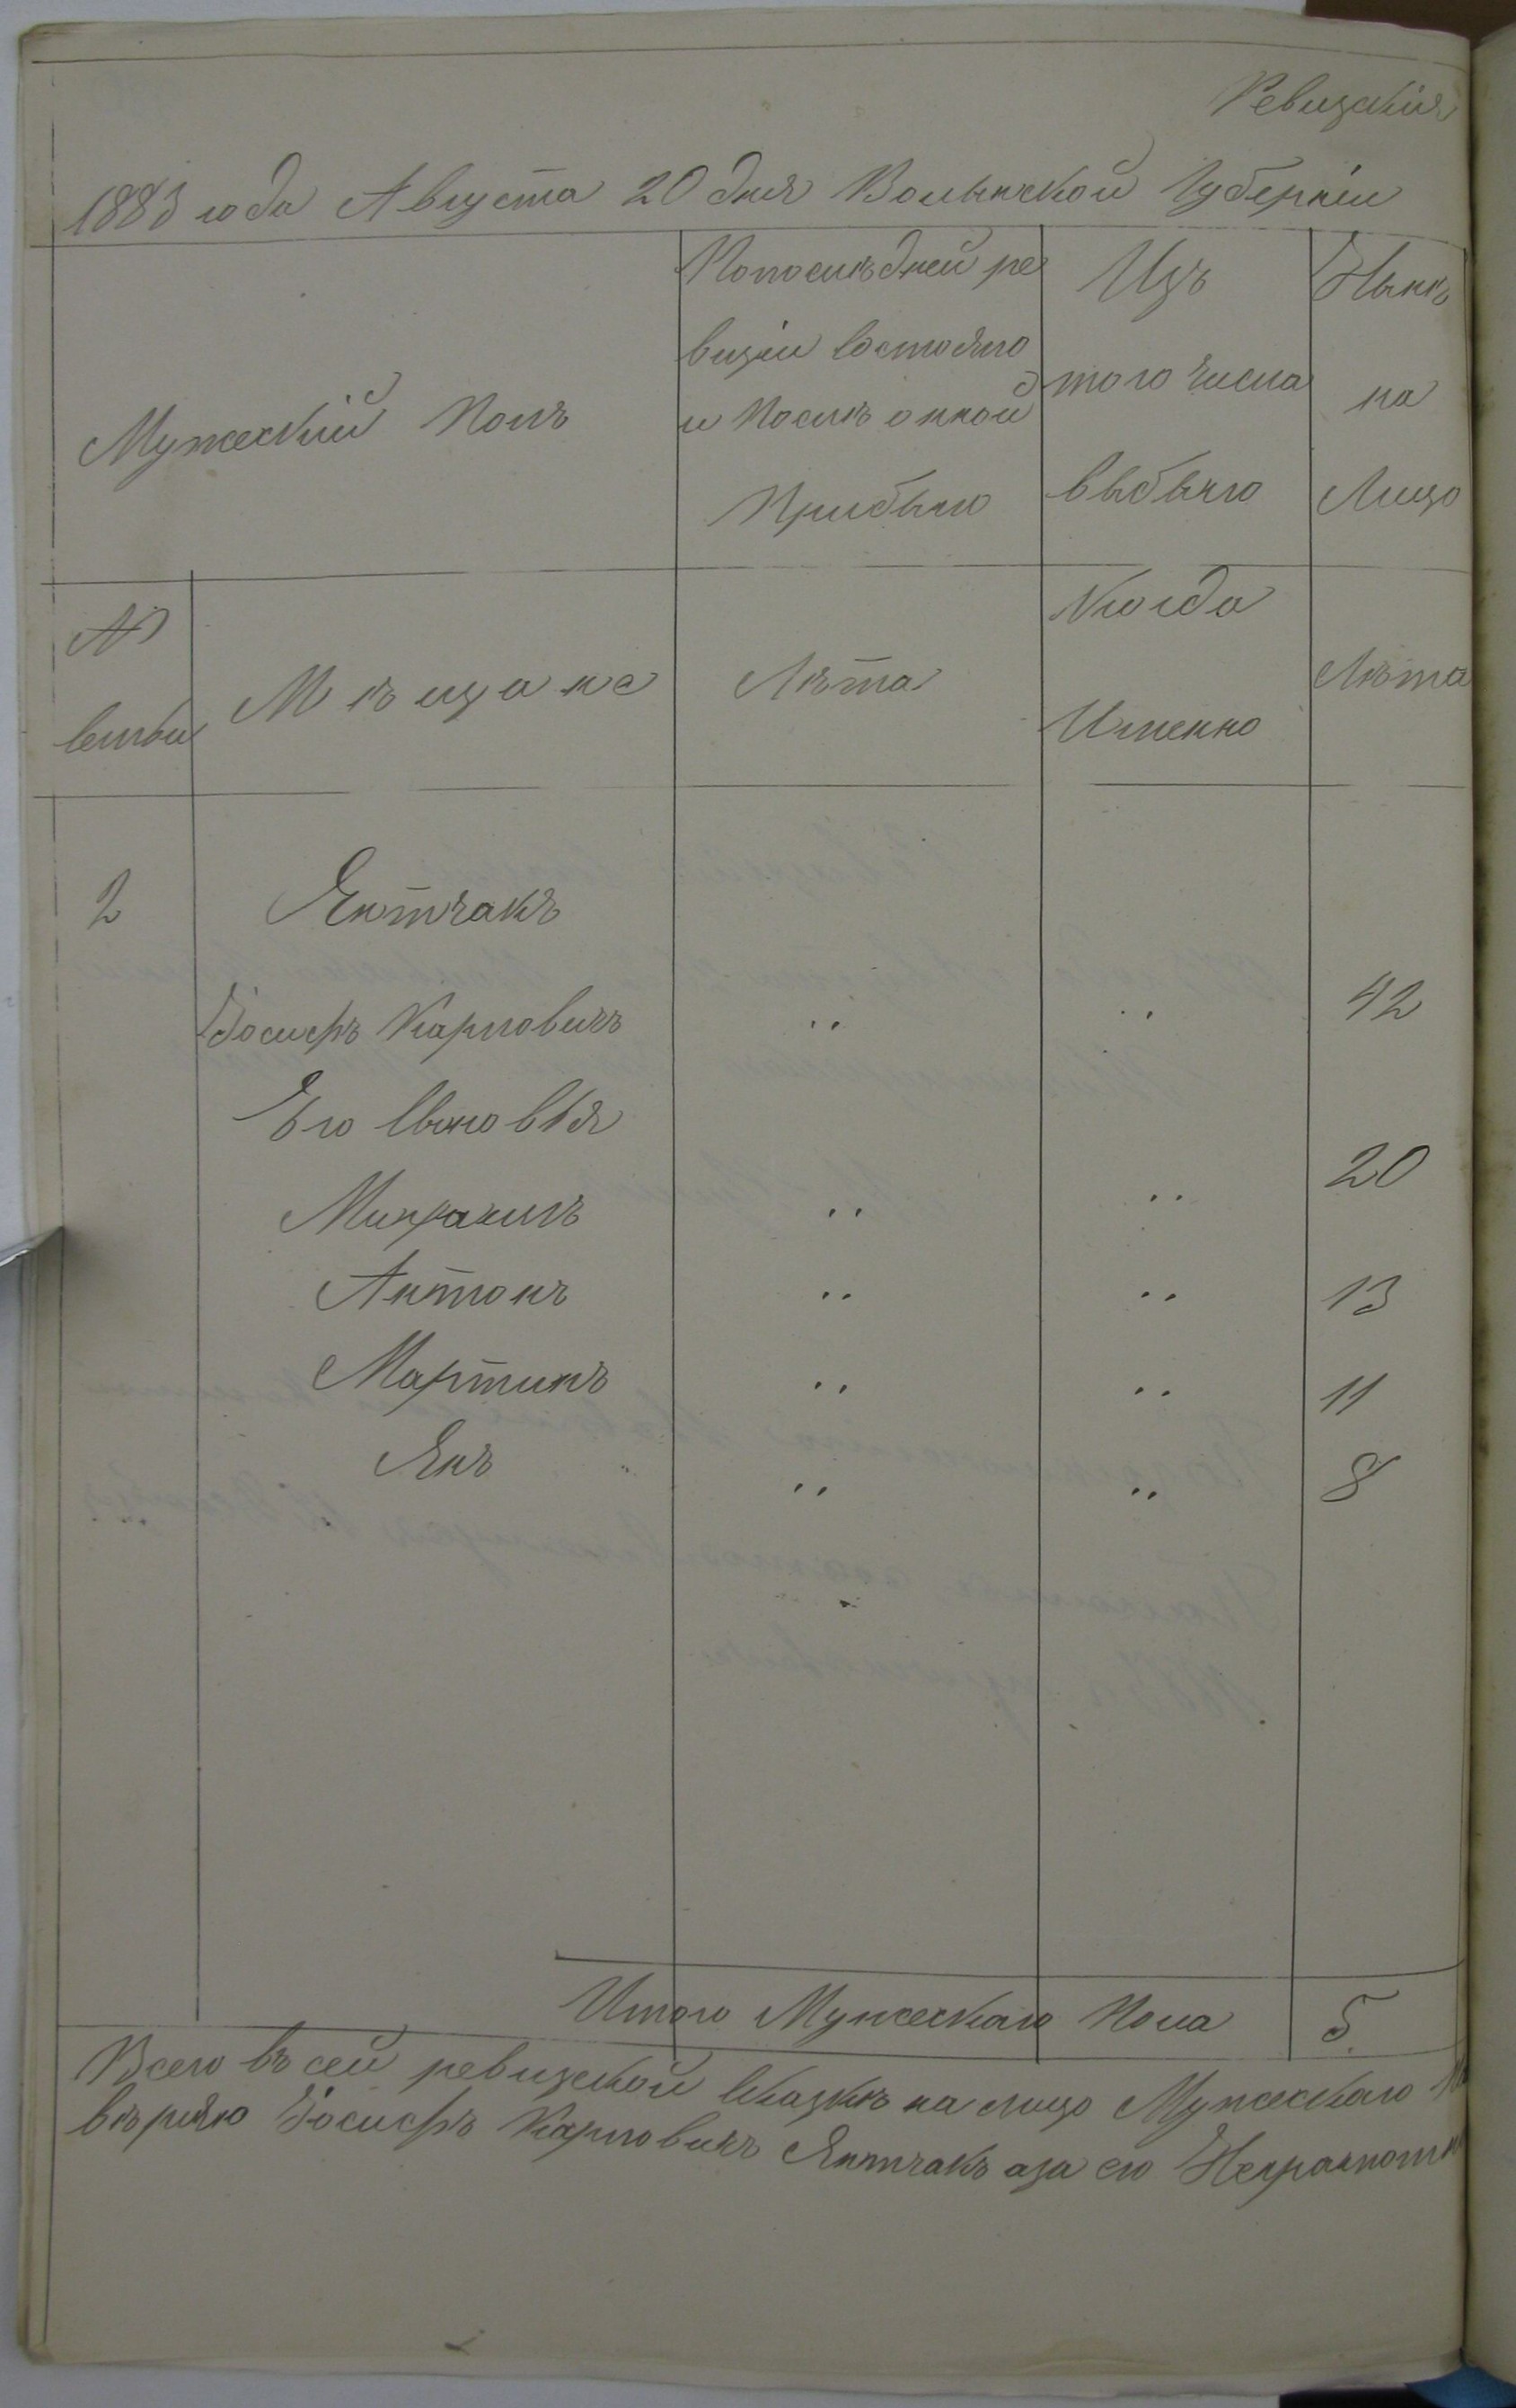 Ревизскія
1883 года Августа 20 дня Волынской Губерніи
Мужескій Полъ
Попослѣдней ре
визіи Состояло
и Послѣ онной
Прибыло
Изъ
того числа
выбыло
Нынѣ
на
Лицо
№
Семьи
Мѣщане
Лѣта
Когда
Именно
Лѣта
2 Янтчакъ
Іосифъ Карловичъ " " 42
Его Сыновья
Михаилъ " " 20
Антонъ " " 13
Мартинъ " " 11
Янъ " " 8
Итого Мужескаго Пола 5.
Всего въ сей ревизской Сказкѣ на лицо Мужескаго
вѣряю Іосифъ Карловичъ Янтчакъ аза его Неграмотн